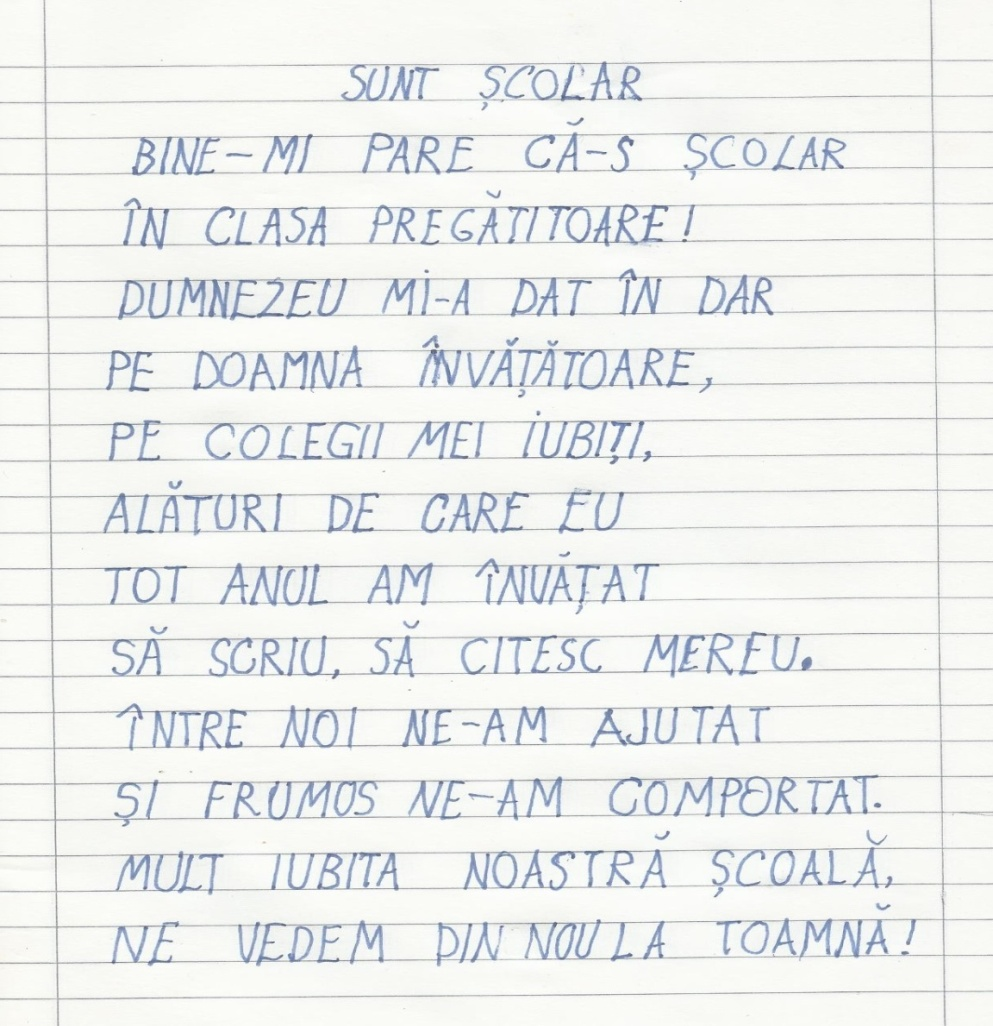 SUNT ȘCOLAR
BINE-MI PARE CĂ-S ȘCOLAR
ÎN CLASA PREGĂTITOARE!
DUMNEZEU MI-A DAT ÎN DAR
PE DOAMNA ÎNVĂȚĂTOARE,
PE COLEGII MEI IUBIȚI,
ALĂTURI DE CARE EU
TOT ANUL AM ÎNVĂȚAT
SĂ SCRIU, SĂ CITESC MEREU.
ÎNTRE NOI NE-AM AJUTAT
ȘI FRUMOS NE-AM COMPORTAT.
MULT IUBITA NOASTRĂ ȘCOALĂ,
NE VEDEM DIN NOU LA TOAMNĂ!